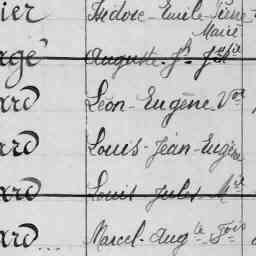 ier Isidore-Emile-Pierre
Marie
agé Auguste-Jh
ard Léon-Eugène-Vor
ard Louis-Jean-Eugène
ard Louis Jules
ard... Marcel-Augte-Fois